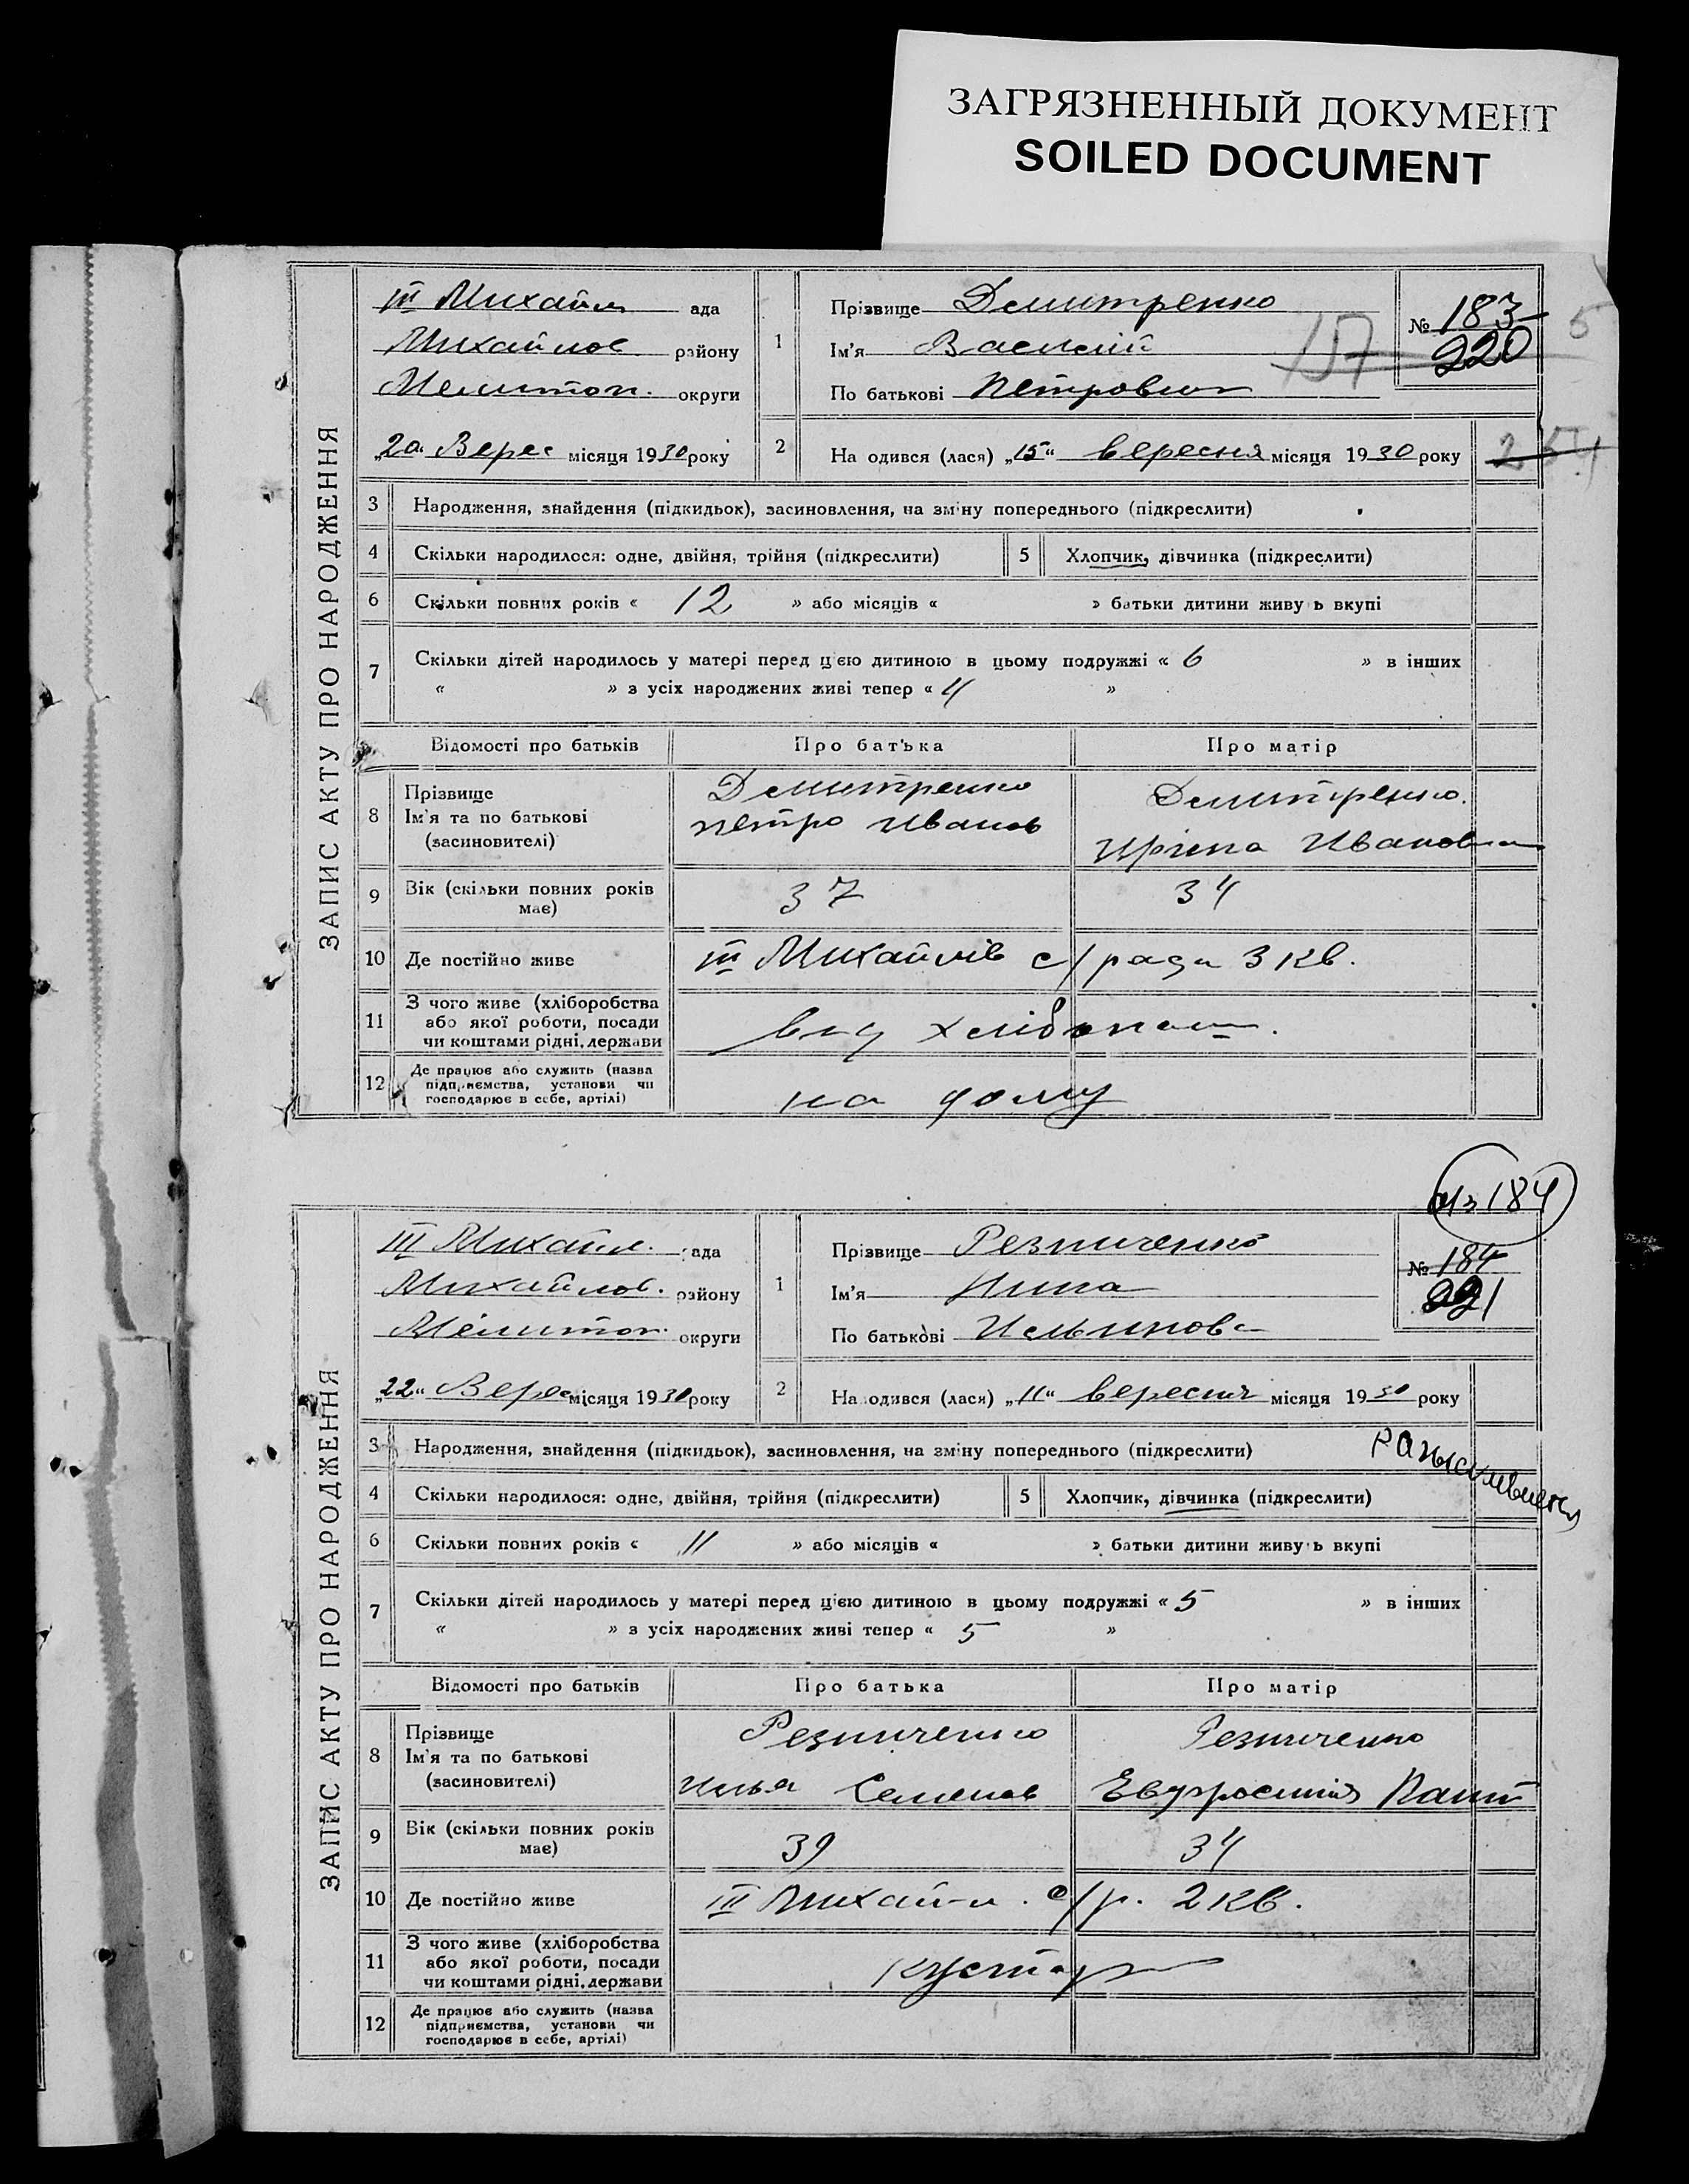 ЗАГРЯЗНЕННЫЙ ДОКУМЕНТ
SOILED DOCUMENT
ЗАПИС АКТУ ПРО НАРОДЖЕННЯ
III Михайл ада
Михайлов. району
Мелитоп. округи
„20“ Верес місяця 1930 року
1
Прізвище Дмитренко
Ім'я Василий
По батькові Петрович
№ 183
220
157
5
2
На одився (лася) „15“ вересня місяця 1930 року
251
3 Народження, знайдення (підкидьок), засиновлення, на зміну попереднього (підкреслити)
4 Скільки народилося: одне, двійня, трійня (підкреслити) 5 Хлопчик, дівчинка (підкреслити)
6 Скільки повних років « 12 » або місяців « » батьки дитини живу ь вкупі
7 Скільки дітей народилось у матері перед цією дитиною в цьому подружжі « 6 » в інших
« » з усіх народжених живі тепер « 4 »
Відомості про батьків Про батька Про матір
8 Прізвище Ім'я та по батькові (засиновителі)
Дмитренко Дмитренко.
Петро Иванов Ирина Ивановна
9 Вік (скільки повних років має) 37 34
10 Де постійно живе III Михайлів с/ради 3 кв.
11 З чого живе (хліборобства або якої роботи, посади чи коштами рідні, держави
від хлібопаш.
12 Де працює або служить (назва підприємства, установи чи господарює в себе, артілі)
на дому
184
ЗАПИС АКТУ ПРО НАРОДЖЕННЯ
III Михайл. ада
Михайлов. району
Мелитоп. округи
„22“ Верес місяця 1930 року
1
Прізвище Резниченко
Ім'я Нина
По батькові Ильинова
№ 184
221
2
На одився (лася) „11“ вересня місяця 1930 року
3 Народження, знайдення (підкидьок), засиновлення, на зміну попереднього (підкреслити)
4 Скільки народилося: одне, двійня, трійня (підкреслити) 5 Хлопчик, дівчинка (підкреслити)
6 Скільки повних років « 11 » або місяців « » батьки дитини живу ь вкупі
7 Скільки дітей народилось у матері перед цією дитиною в цьому подружжі « 5 » в інших
« » з усіх народжених живі тепер « 5 »
Відомості про батьків Про батька Про матір
8 Прізвище Ім'я та по батькові (засиновителі)
Резниченко Резниченко
Илья Семенов Евфросиния
9 Вік (скільки повних років має) 39 34
10 Де постійно живе III Михайл. с/р. 2 кв.
11 З чого живе (хліборобства або якої роботи, посади чи коштами рідні, держави
кустар
12 Де працює або служить (назва підприємства, установи чи господарює в себе, артілі)